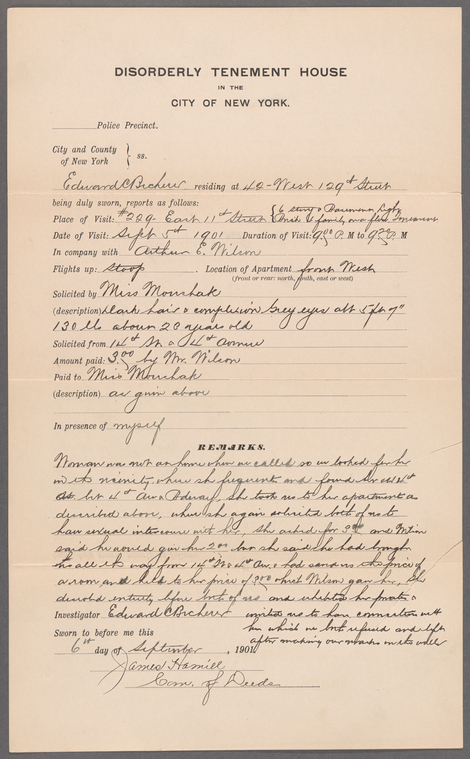 DISORDERLY TENEMENT HOUSE
IN THE
CITY OF NEW YORK.
Police Precinct.
City and County
of New York } ss.
Edward C Becherer residing at 42-West 129th Street
being duly sworn, reports as follows:
Place of Visit: #229- East 11th Street { 6 story & Basement
Brick 2 family on a floor Tenement
Date of Visit: Sept 5th 1901 Duration of Visit: P. M to P. M
In company with Arthur E. Wilson
Flights up: stoop. Location of Apartment front West
(front or rear: north, south, east or west)
Solicited by Miss Moushak
(description) dark hair & complexion Grey eyes abt 5 ft 7"
130 lb about 23 years old
Solicited from 14th St. & 4th Avenue
Amount paid: 3.00 by Mr. Wilson
Paid to Miss Moushak
(description) as given above
In presence of myself
REMARKS.
Woman was not at home when we called so we looked for her
in the vicinity where she frequents and found her at 14th
St. bet 4th Ave & Broadway. She took us to her apartment as
described above, where she again solicited both of us to
have sexual intercourse with her, she asked for 3.00 and Wilson
said he would give her 2.00 but she said she had brought
us all the way from 14th St & 4th Ave, & had saved us the price of
a room and held to her price of 3.00 which Wilson gave her, She
disrobed entirely before both of us and exhibited her private &
Investigator Edward C Becherer invited us to have connection with
her which we both refused and left
after making our marks on the wall
Sworn to before me this
6th day of September, 1901
James Hamill
Com. of Deeds